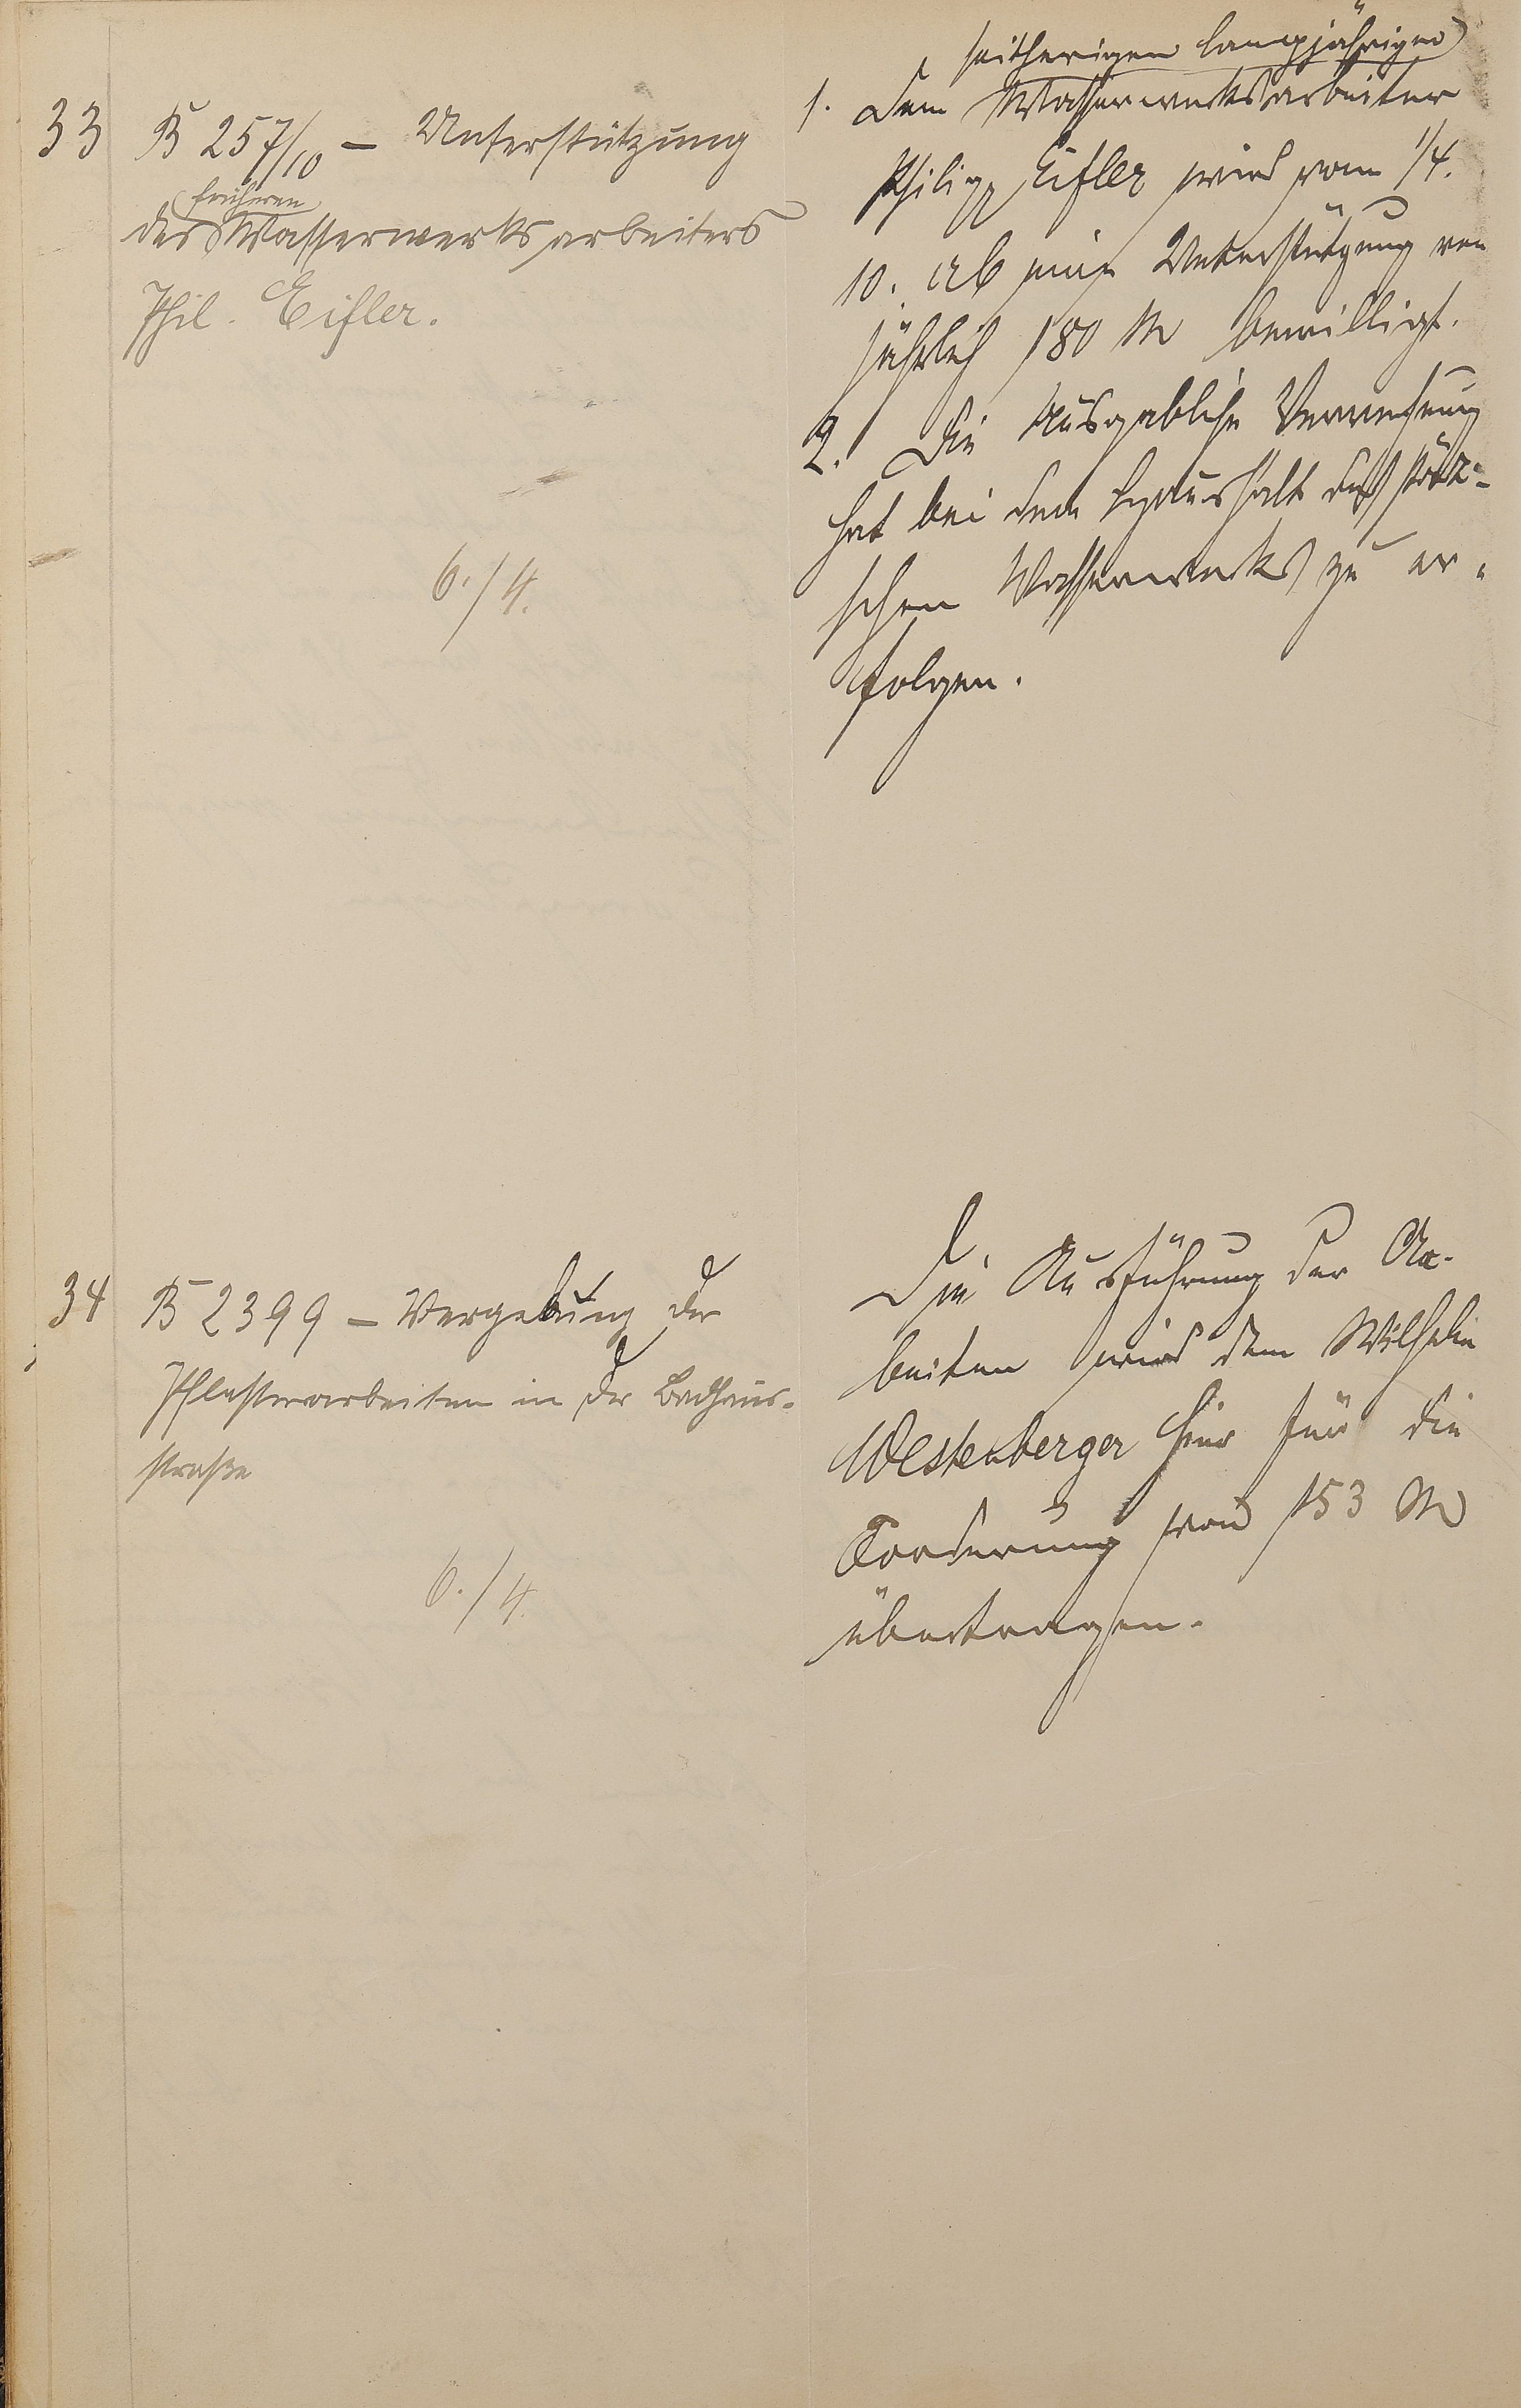 33
B 257/10 – Unterstützung
früheren
des Wasserwerksarbeiters
Phil. Eifler.
6./4.
seitherigen langjährigen
1. Dem Wasserwerksarbeiter
Philipp Eifler wird vom 1/4.
10. ab eine Unterstützung von
jährlich 180 M bewilligt.
2. Die ausgabliche Verrechnung
hat bei dem Haushalt des städti-
schen Wasserwerks zu er-
folgen.
34
B 2399 – Vergebung der
Pflasterarbeiten in der Badhaus-
straße
6./4.
Die Ausführung der Ar-
beiten wird dem Wilhelm
Westenberger hier für die
Forderung von 153 M
übertragen.